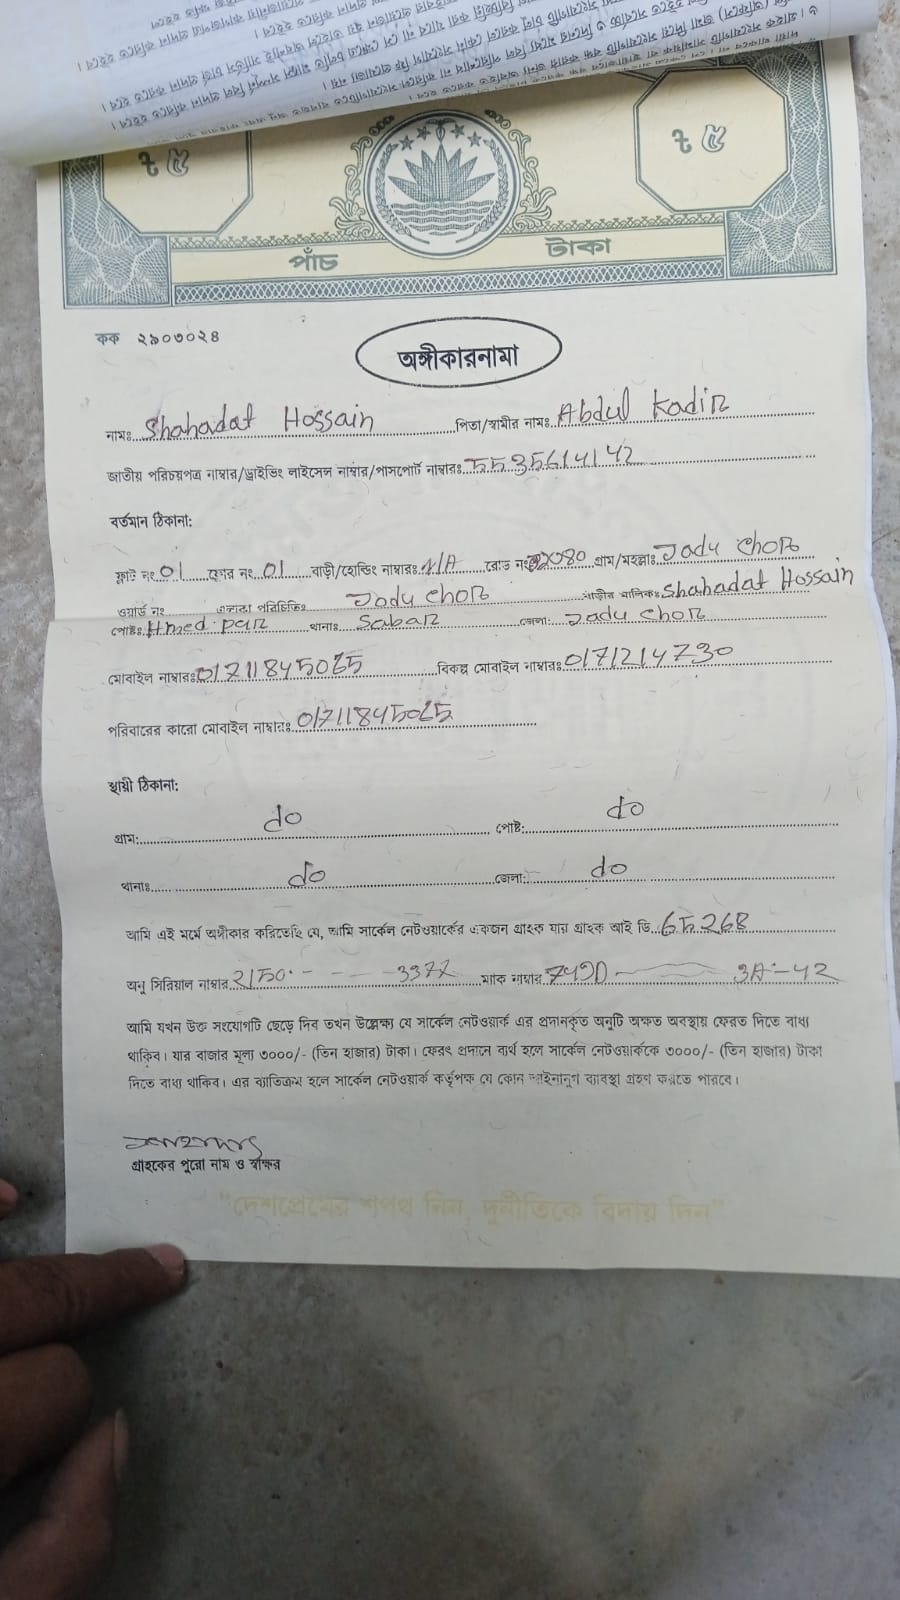 ৳ ৫
৳ ৫
পাঁচ টাকা
কক ২৯০৩০২৪
অঙ্গীকারনামা
নামঃ Shahadat Hossain পিতা/স্বামীর নামঃ Abdul Kadir
জাতীয় পরিচয়পত্র নাম্বার/ড্রাইভিং লাইসেন্স নাম্বার/পাসপোর্ট নাম্বারঃ 5535614142
বর্তমান ঠিকানা:
ফ্লাট নং 01 ফ্লোর নং 01 বাড়ী/হোল্ডিং নাম্বারঃ N/A রোড নং গ্রাম/মহল্লাঃ Jadu Chor
ওয়ার্ড নং এলাকা পরিচিতিঃ Jadu Chor বাড়ীর মালিকঃ Shahadat Hossain
পোষ্টঃ Hmed par থানাঃ Sabar জেলা: Jadu Chor
মোবাইল নাম্বারঃ 01711845065 বিকল্প মোবাইল নাম্বারঃ 0171214730
পরিবারের কারো মোবাইল নাম্বারঃ 01711845065
স্থায়ী ঠিকানা:
গ্রাম: do পোষ্ট: do
থানাঃ do জেলা: do
আমি এই মর্মে অঙ্গীকার করিতেছি যে, আমি সার্কেল নেটওয়ার্কের একজন গ্রাহক যার গ্রাহক আই ডি 65268
অনু সিরিয়াল নাম্বার 2150 - - - 3377 ম্যাক নাম্বার 749D 3A-42
আমি যখন উক্ত সংযোগটি ছেড়ে দিব তখন উল্লেখ্য যে সার্কেল নেটওয়ার্ক এর প্রদানকৃত অনুটি অক্ষত অবস্থায় ফেরত দিতে বাধ্য
থাকিব। যার বাজার মূল্য ৩০০০/- (তিন হাজার) টাকা। ফেরৎ প্রদানে ব্যর্থ হলে সার্কেল নেটওয়ার্ককে ৩০০০/- (তিন হাজার) টাকা
দিতে বাধ্য থাকিব। এর ব্যতিক্রম হলে সার্কেল নেটওয়ার্ক কর্তৃপক্ষ যে কোন আইনানুগ ব্যবস্থা গ্রহণ করতে পারবে।
গ্রাহকের পুরো নাম ও স্বাক্ষর
"দেশপ্রেমের শপথ নিন, দুর্নীতিকে বিদায় দিন"